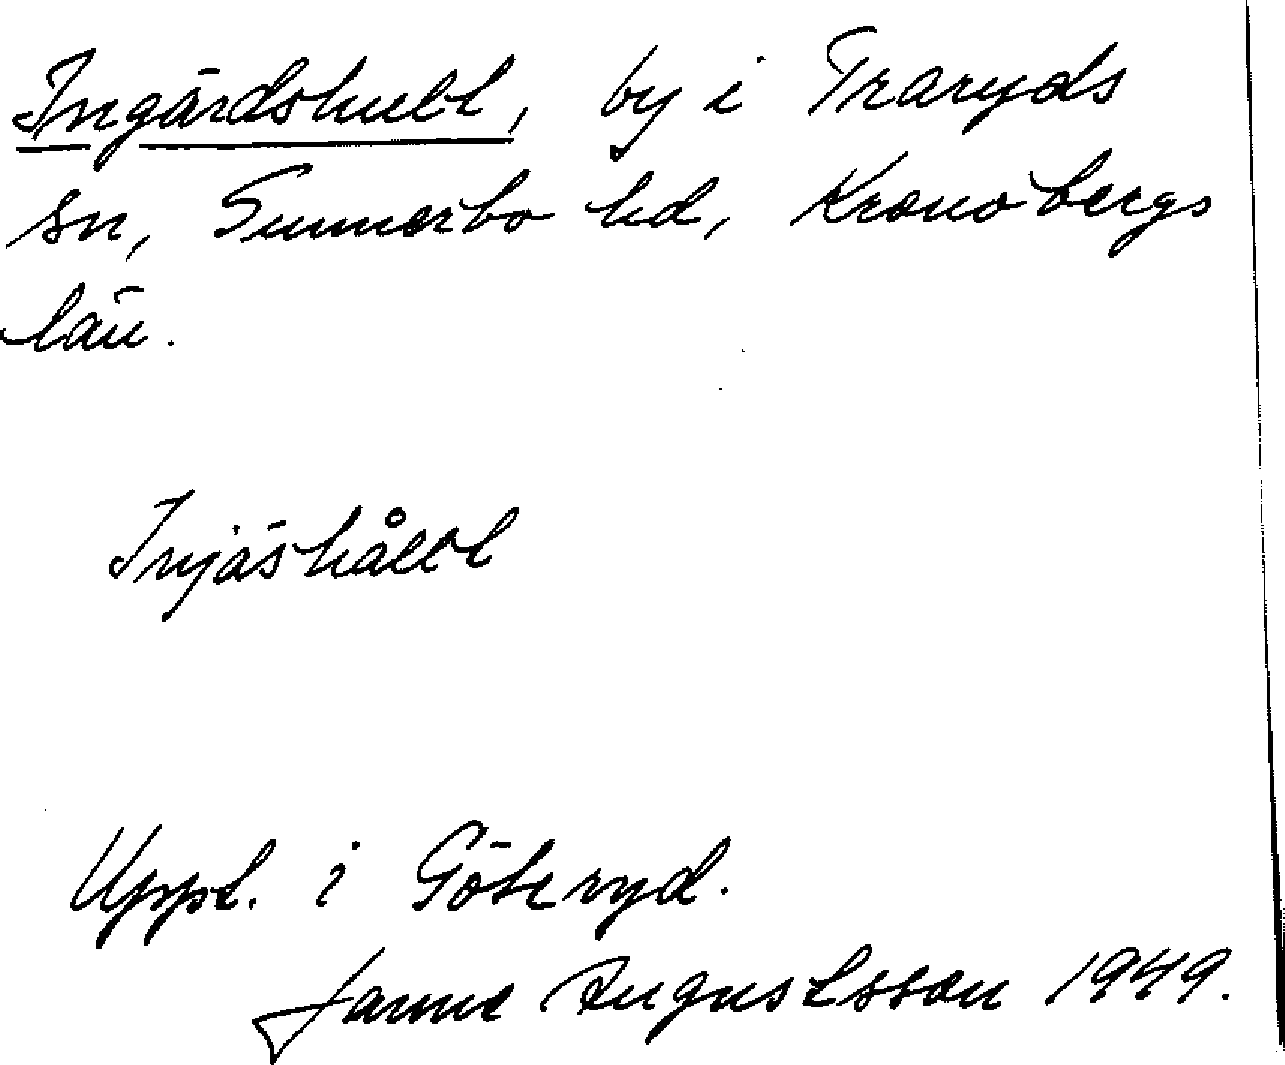 Ingärdshult, by i Traryds
sn, Sunnerbo hd, Kronobergs
län.
Injäshållt
Uppt. i Göteryd.
Janne Augustsson 1949.